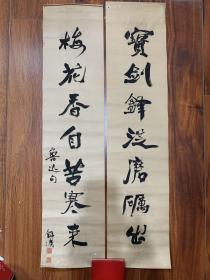 寶劍鋒從磨礪出
梅花香自苦寒来
魯迅句